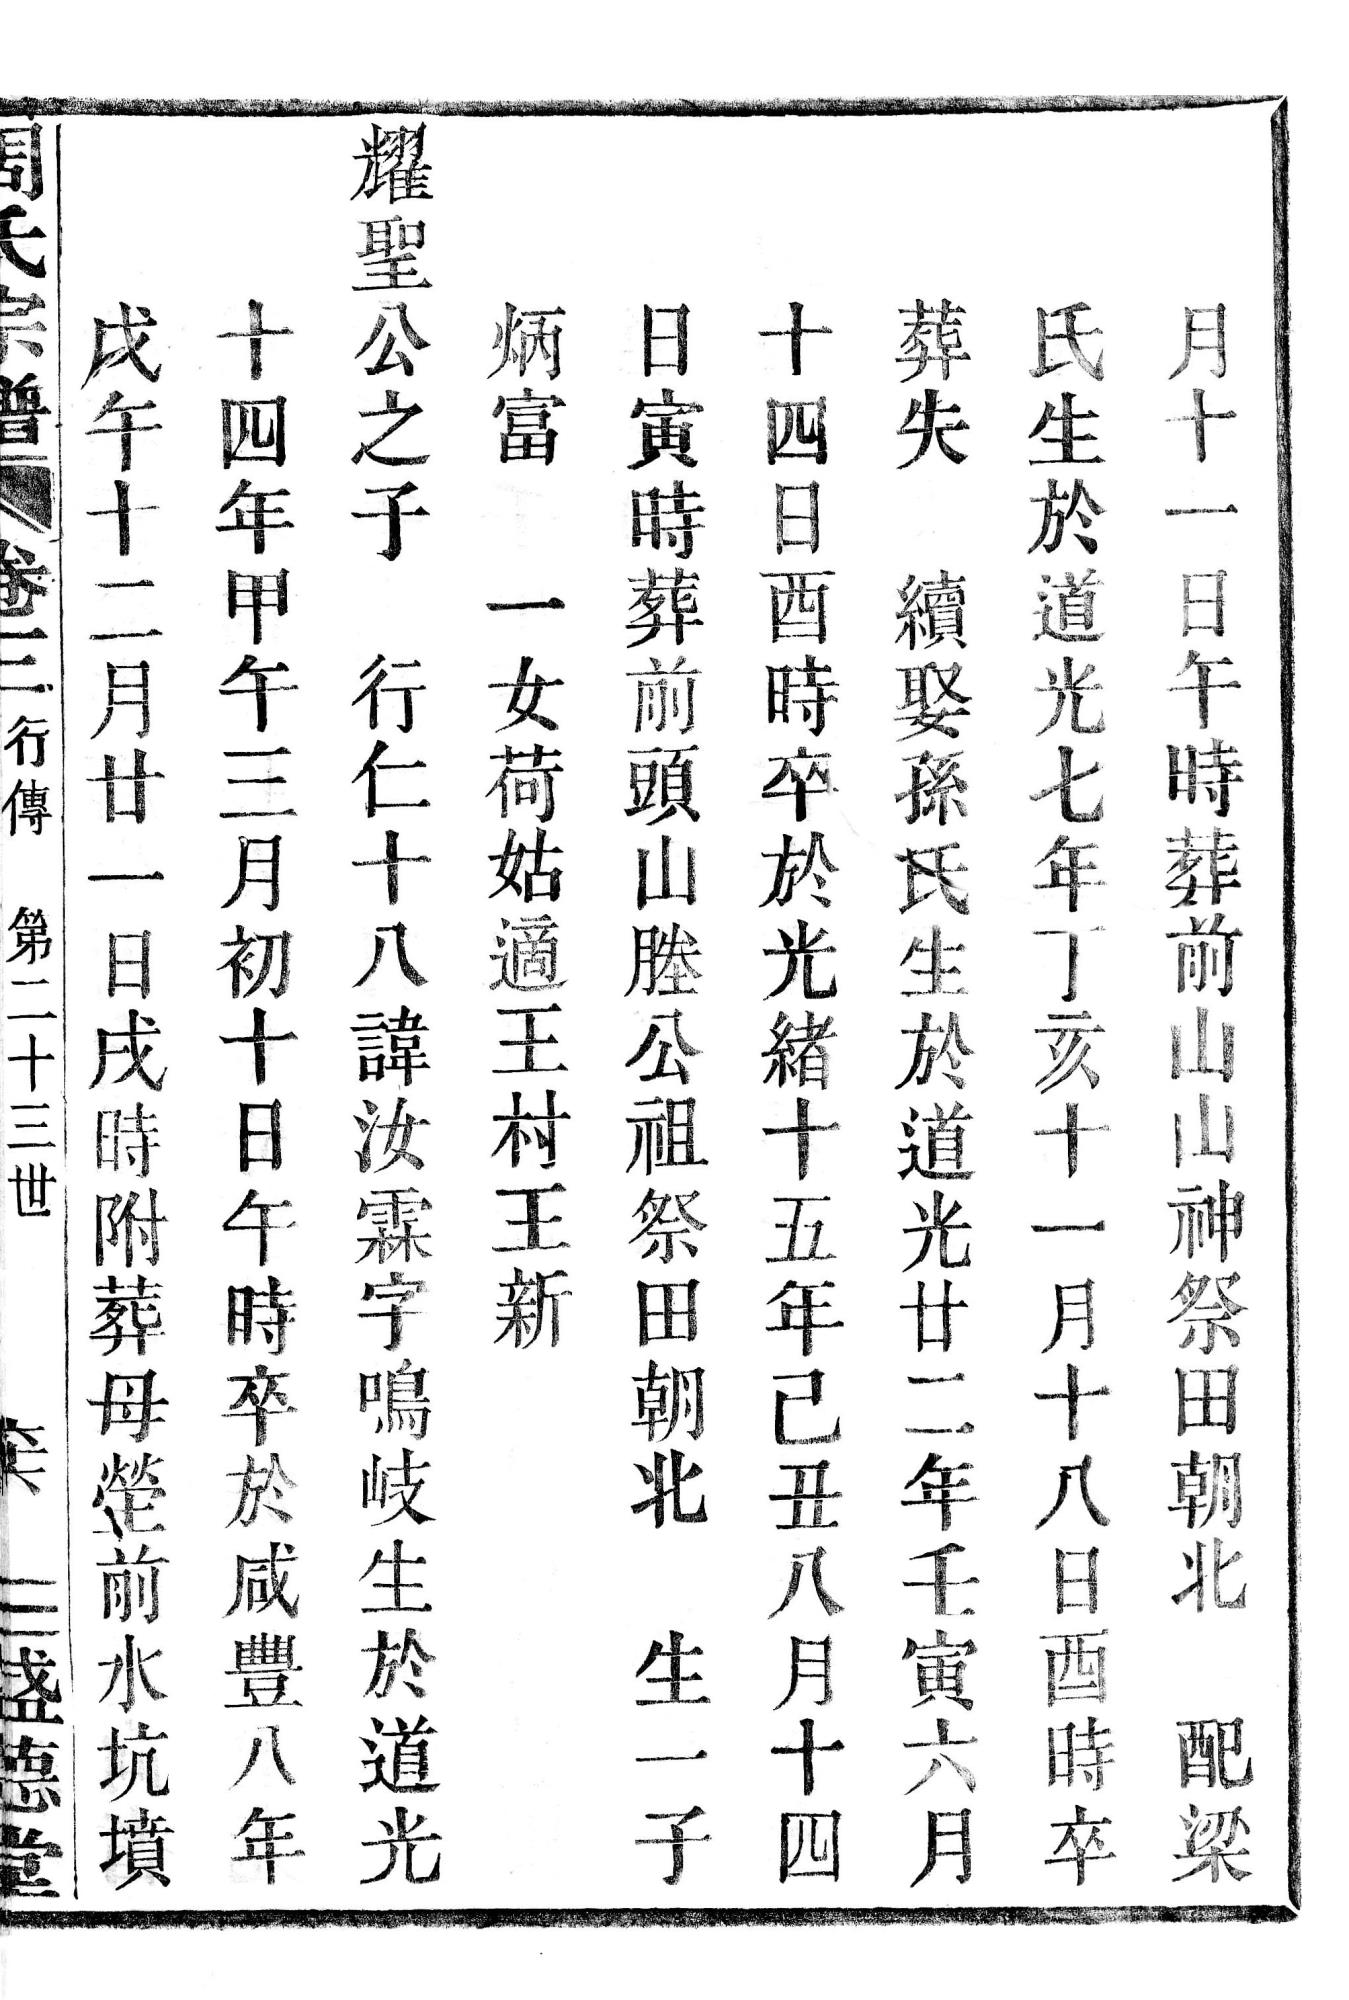 月十一日午時葬前山山神祭田朝北　配梁
氏生於道光七年丁亥十一月十八日酉時卒
葬失　續娶孫氏生於道光廿二年壬寅六月
十四日酉時卒於光緒十五年己丑八月十四
日寅時葬前頭山塍公祖祭田朝北　生一子
炳富　一女荷姑適王村王新
耀聖公之子　行仁十八諱汝霖字鳴岐生於道光
十四年甲午三月初十日午時卒於咸豐八年
戊午十二月廿一日戌時附葬母塋前水坑墳
周氏宗譜　卷二　行傳　第二十三世　三盛德堂